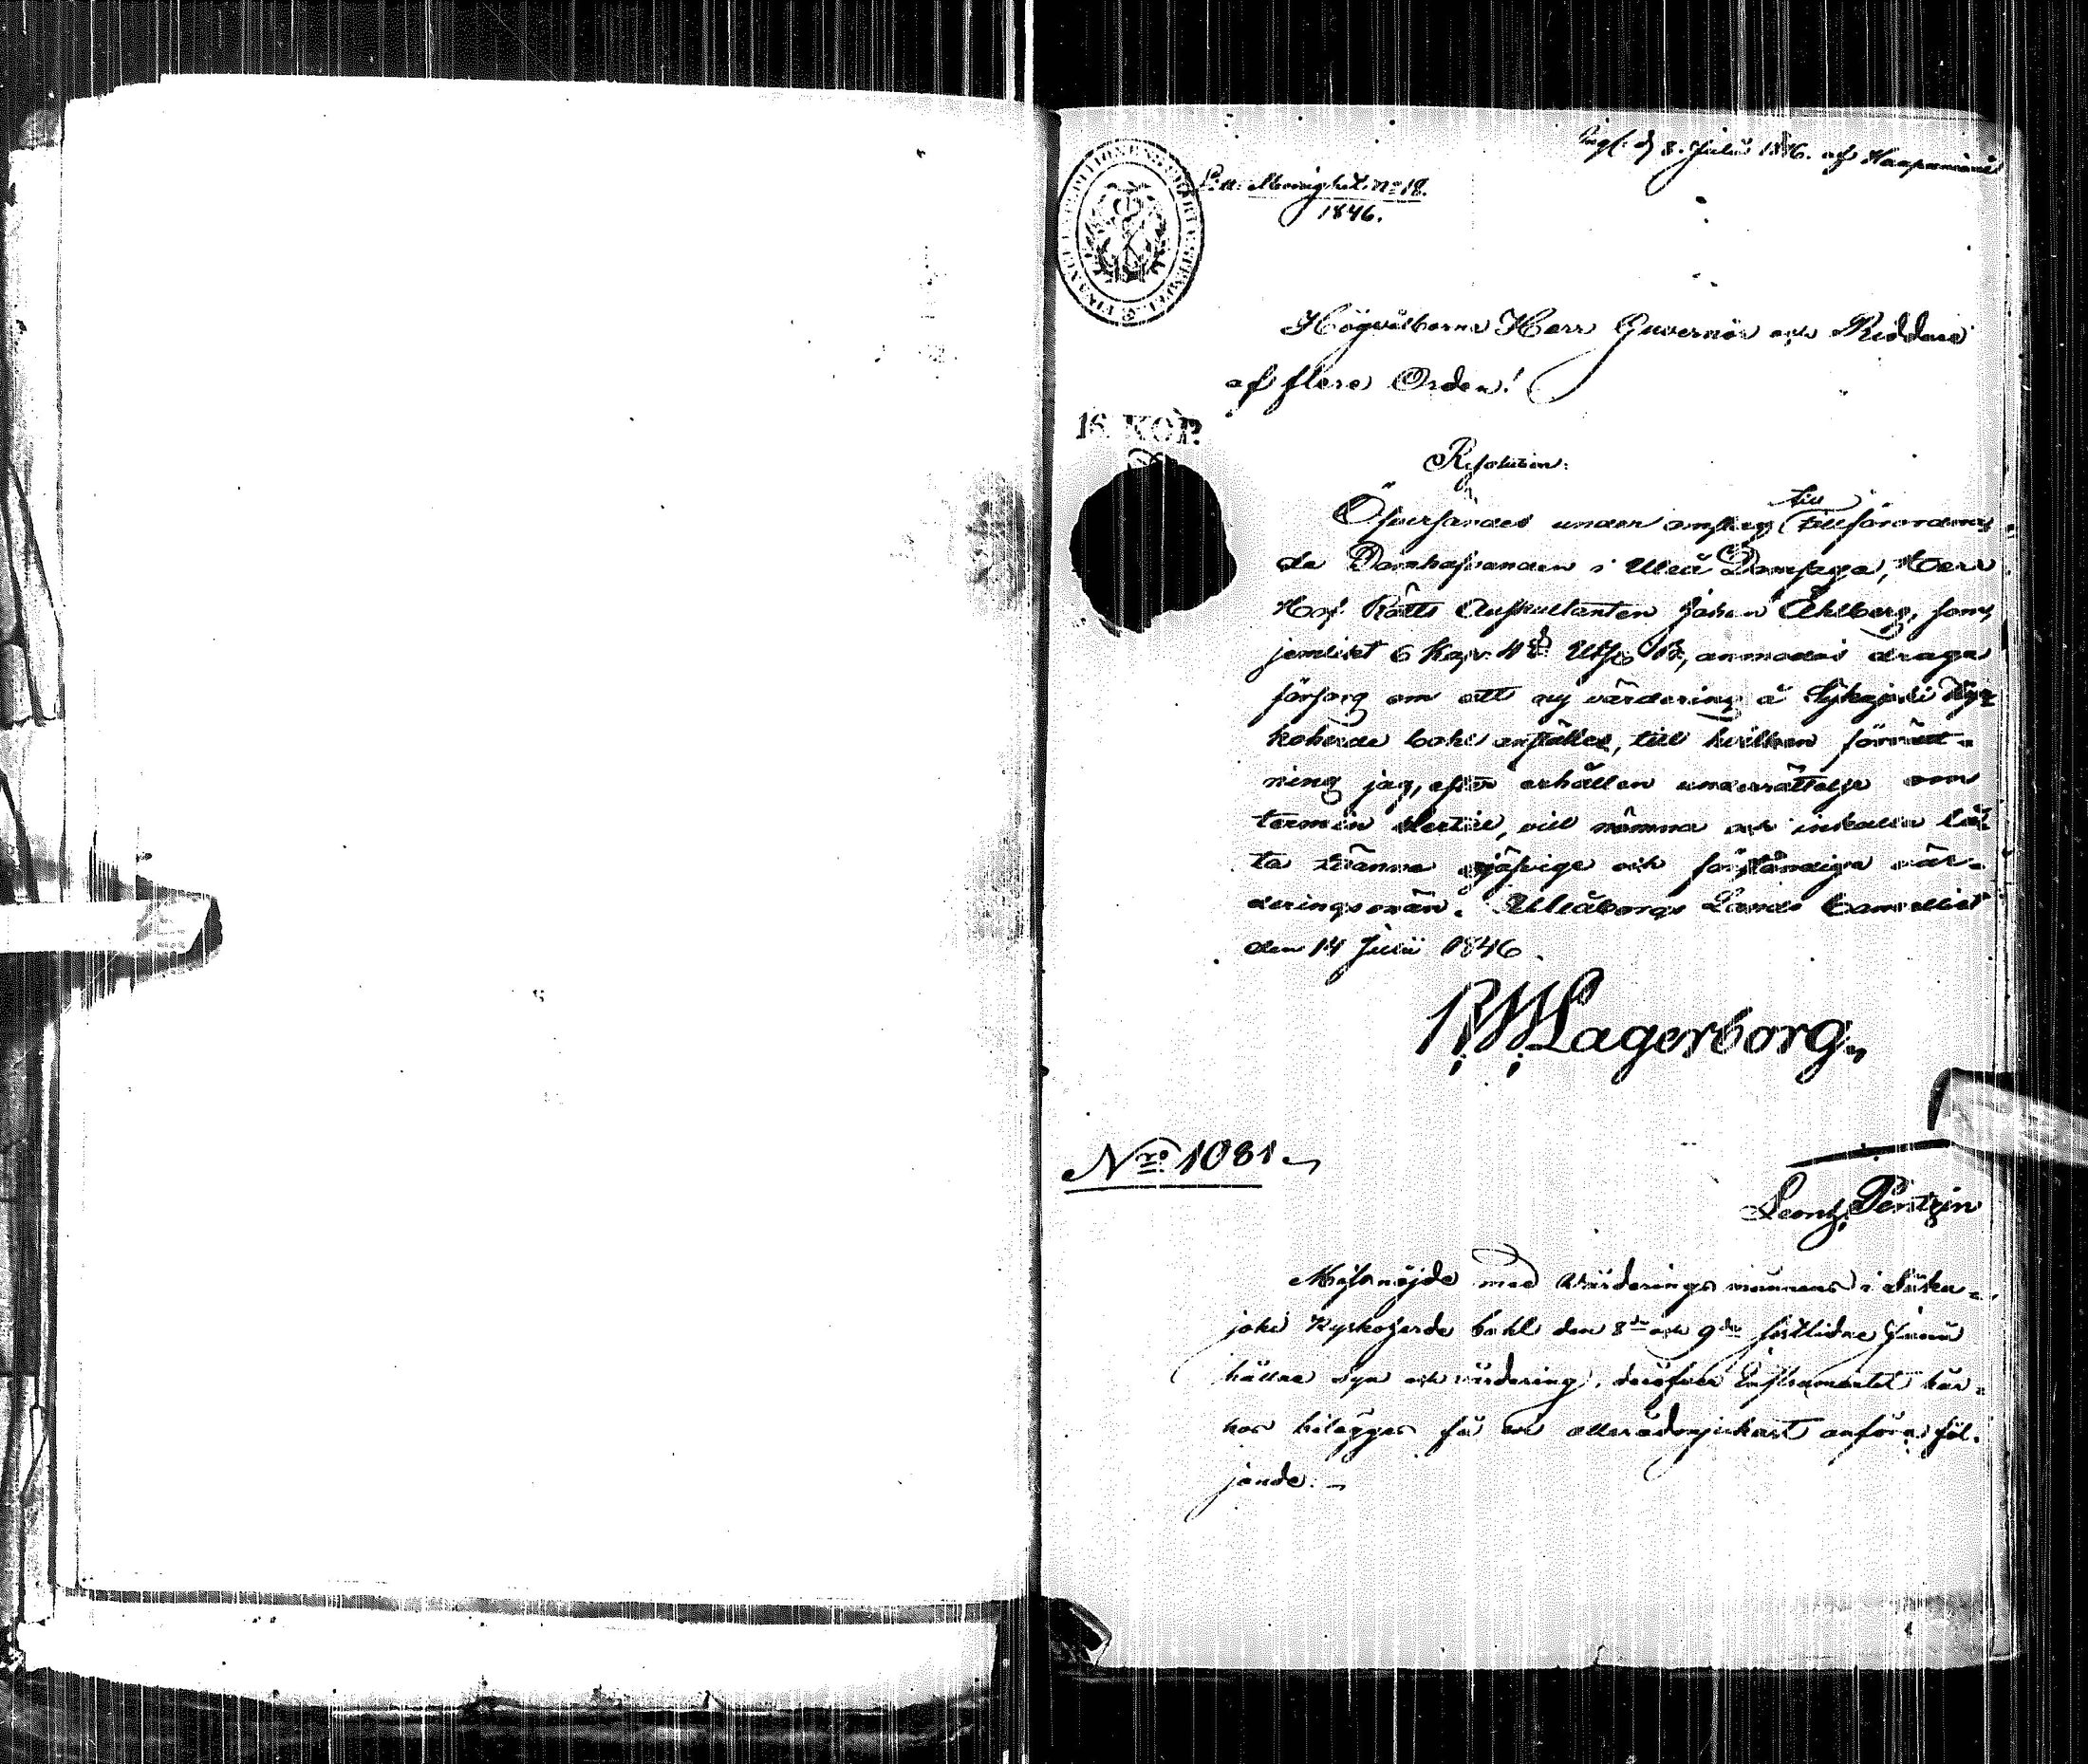 Ingf. d 8. Julii 1846. af Haapaniemi
Litt. Månighet. No 18.
1846.
Högvälborne Herr Guvernör och Riddare
af flere Orden!
16. KOP.
Resolution:
till
Öfversändes under omslag tillförordnan-
de Domhafvanden i Uleå Domsaga, Herr
Hof Rätts Auskultanten Johan Åhlberg, som,
jemlikt 6 Kap. 4 § Uts. B., anmodas draga
försorg om att ny värdering å Sykajoki Kyr-
koherde bohl anställes, till hvilken förrätt-
ning jag, efter erhållen underrättelse om
termin dertill, vill nämna och inkalla lå-
ta tvänne ojäfvige och förståndige vär-
deringsmän. Uleåborgs Lands Cancellie
den 14 Julii 1846.
R W Lagerborg
No 1081.
Leon. Pentzin
Missnöjde med Värderings männens i Siika-
joki Kyrkoherde bohl den 8de och 9de sistlidne Junii
hållne syn och värdering, deröfver Instrumentet här-
hos bilägges få vi allerödmjukast anföra föl-
jande.